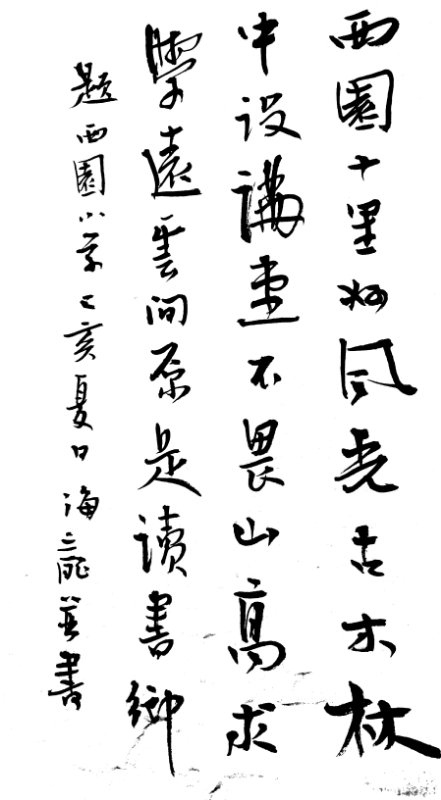 西園十里好風光古木林
中设講堂不畏山高求
學遠雲間原是讀書鄉
題西園小学己亥夏日海並書